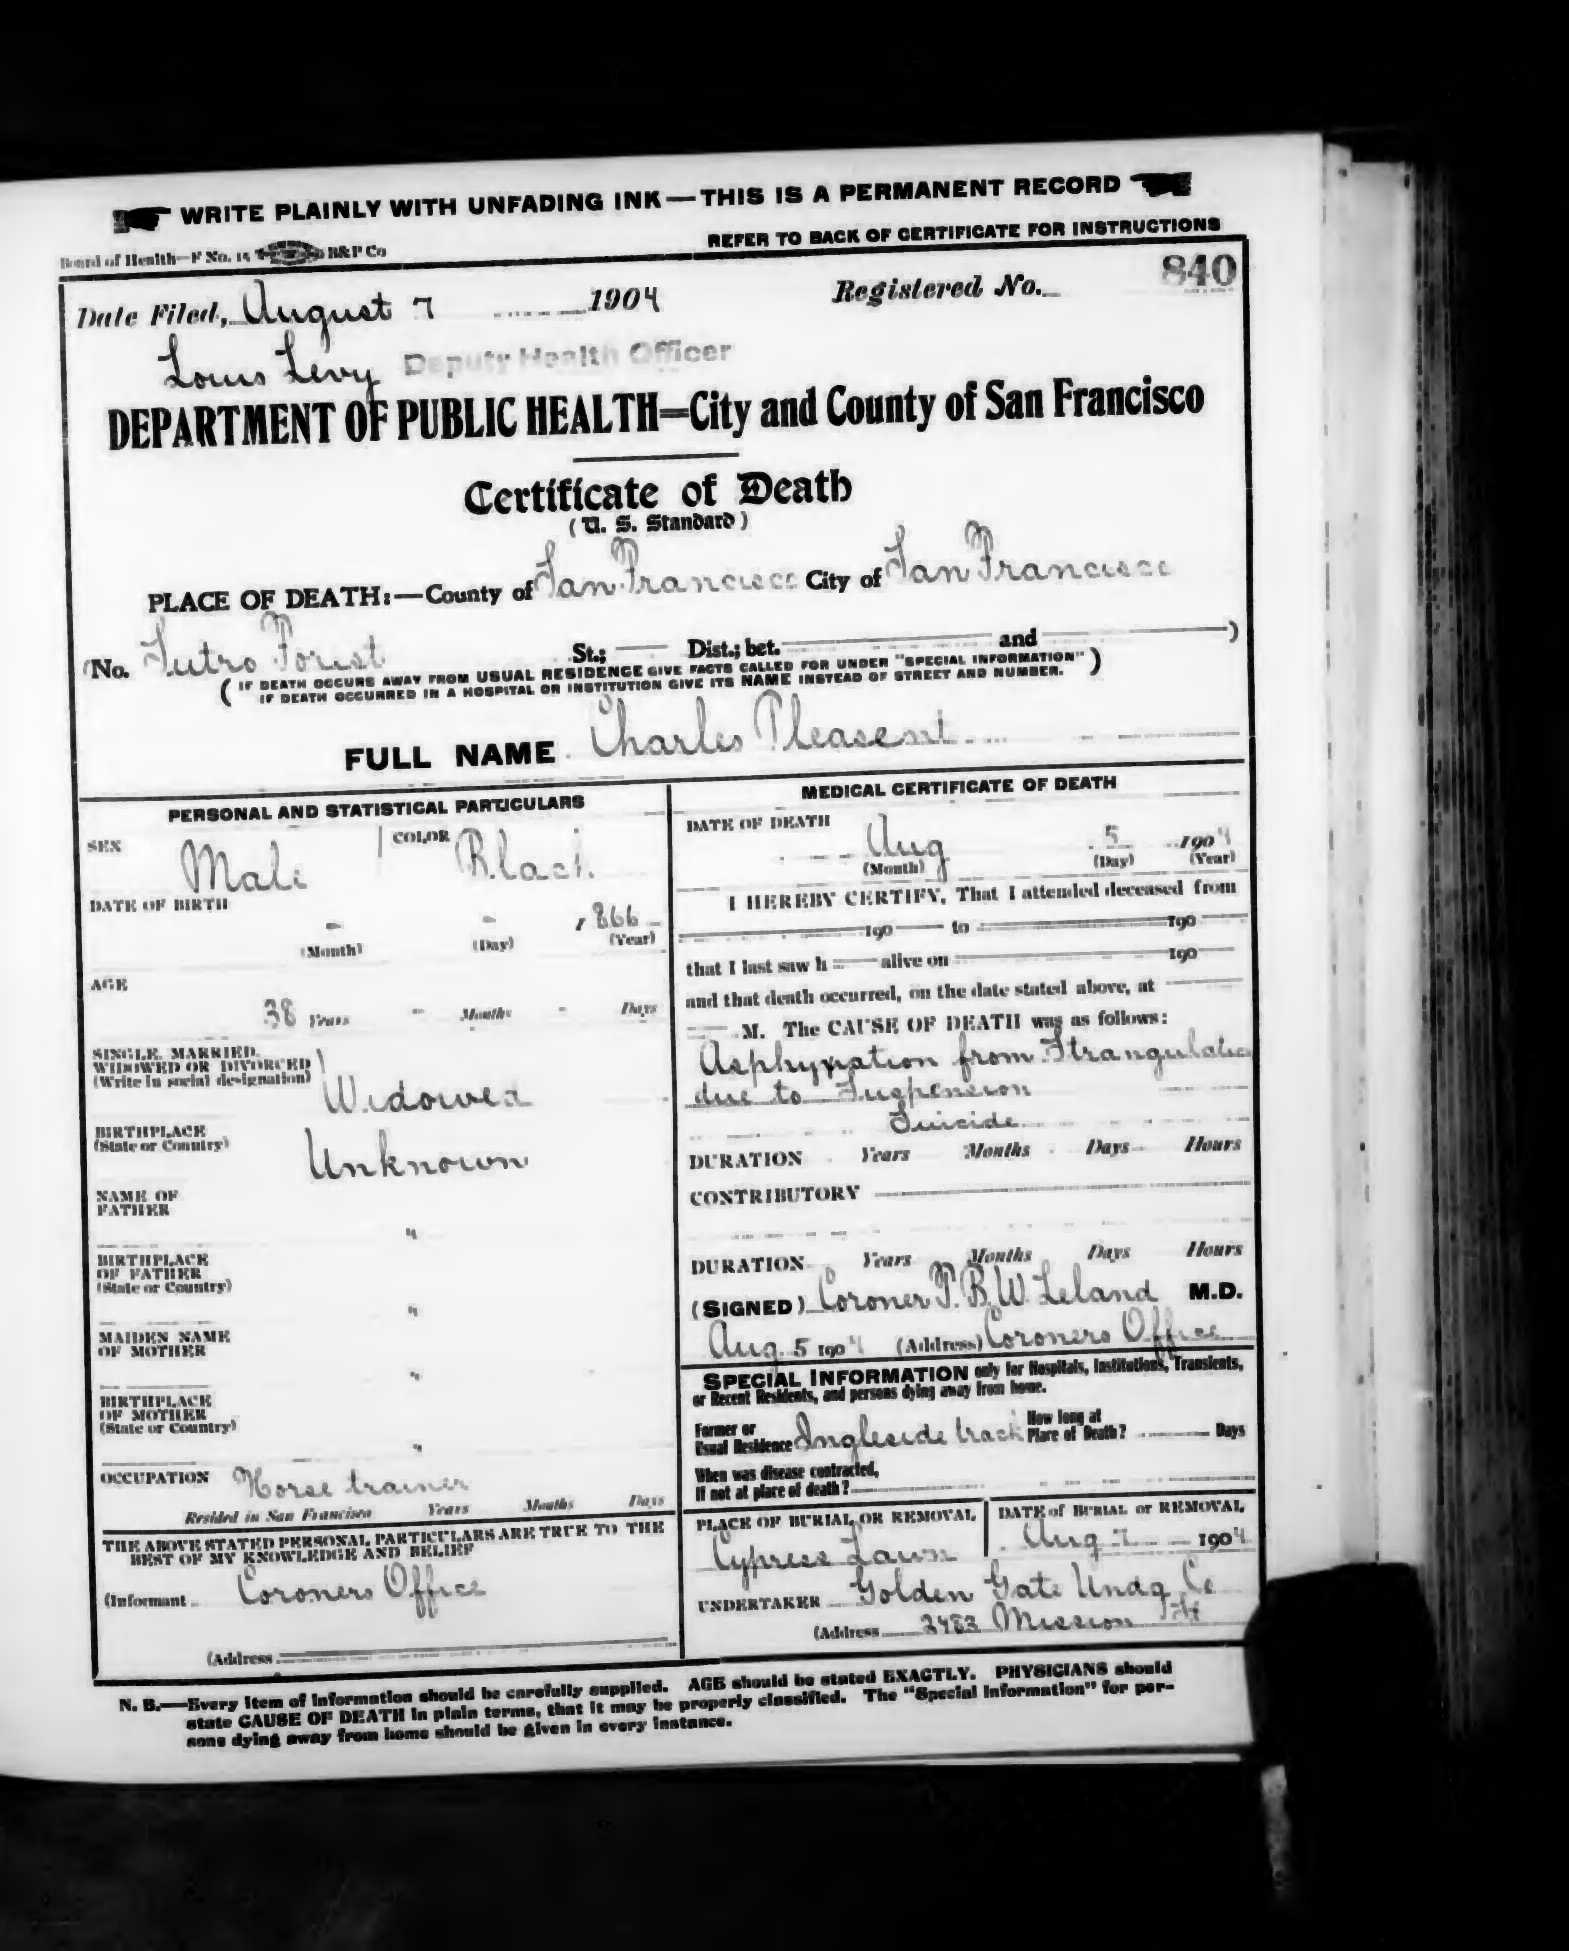 WRITE PLAINLY WITH UNFADING INK—THIS IS A PERMANENT RECORD
Board of Health—F No. 15 B&P Co
REFER TO BACK OF CERTIFICATE FOR INSTRUCTIONS
Date Filed, August 7 1904 Registered No. 840
Louis Levy Deputy Health Officer
DEPARTMENT OF PUBLIC HEALTH=City and County of San Francisco
Certificate of Death
(U. S. Standard)
PLACE OF DEATH:—County of San Francisco City of San Francisco
(No. Sutro Forest St.; Dist.; bet. and )
( IF DEATH OCCURS AWAY FROM USUAL RESIDENCE GIVE FACTS CALLED FOR UNDER "SPECIAL INFORMATION" )
IF DEATH OCCURRED IN A HOSPITAL OR INSTITUTION GIVE ITS NAME INSTEAD OF STREET AND NUMBER.
FULL NAME Charles Pleasent
PERSONAL AND STATISTICAL PARTICULARS
SEX Male COLOR Black
DATE OF BIRTH
- - 1866
(Month) (Day) (Year)
AGE
38 Years - Months - Days
SINGLE, MARRIED,
WIDOWED OR DIVORCED
(Write in social designation)
Widowed
BIRTHPLACE
(State or Country)
Unknown
NAME OF
FATHER
"
BIRTHPLACE
OF FATHER
(State or Country)
"
MAIDEN NAME
OF MOTHER
"
BIRTHPLACE
OF MOTHER
(State or Country)
"
OCCUPATION Horse trainer
Resided in San Francisco Years Months Days
THE ABOVE STATED PERSONAL PARTICULARS ARE TRUE TO THE
BEST OF MY KNOWLEDGE AND BELIEF
(Informant Coroners Office
(Address
MEDICAL CERTIFICATE OF DEATH
DATE OF DEATH
Aug 5 1904
(Month) (Day) (Year)
I HEREBY CERTIFY, That I attended deceased from
190 to 190
that I last saw h alive on 190
and that death occurred, on the date stated above, at
M. The CAUSE OF DEATH was as follows:
Asphyxation from Strangulation
due to Suspension
Suicide
DURATION Years Months Days Hours
CONTRIBUTORY
DURATION Years Months Days Hours
(SIGNED) Coroner T. B. W. Leland M.D.
Aug 5 1904 (Address) Coroners Office
SPECIAL INFORMATION only for Hospitals, Institutions, Transients,
or Recent Residents, and persons dying away from home.
Former or
Usual Residence Ingleside track
How long at
Place of Death? Days
When was disease contracted,
If not at place of death?
PLACE OF BURIAL OR REMOVAL
Cypress Lawn
DATE of BURIAL or REMOVAL
Aug 7 1904
UNDERTAKER Golden Gate Undg Co
(Address 2483 Mission St
N. B.—Every item of information should be carefully supplied. AGE should be stated EXACTLY. PHYSICIANS should
state CAUSE OF DEATH in plain terms, that it may be properly classified. The "Special Information" for per-
sons dying away from home should be given in every instance.